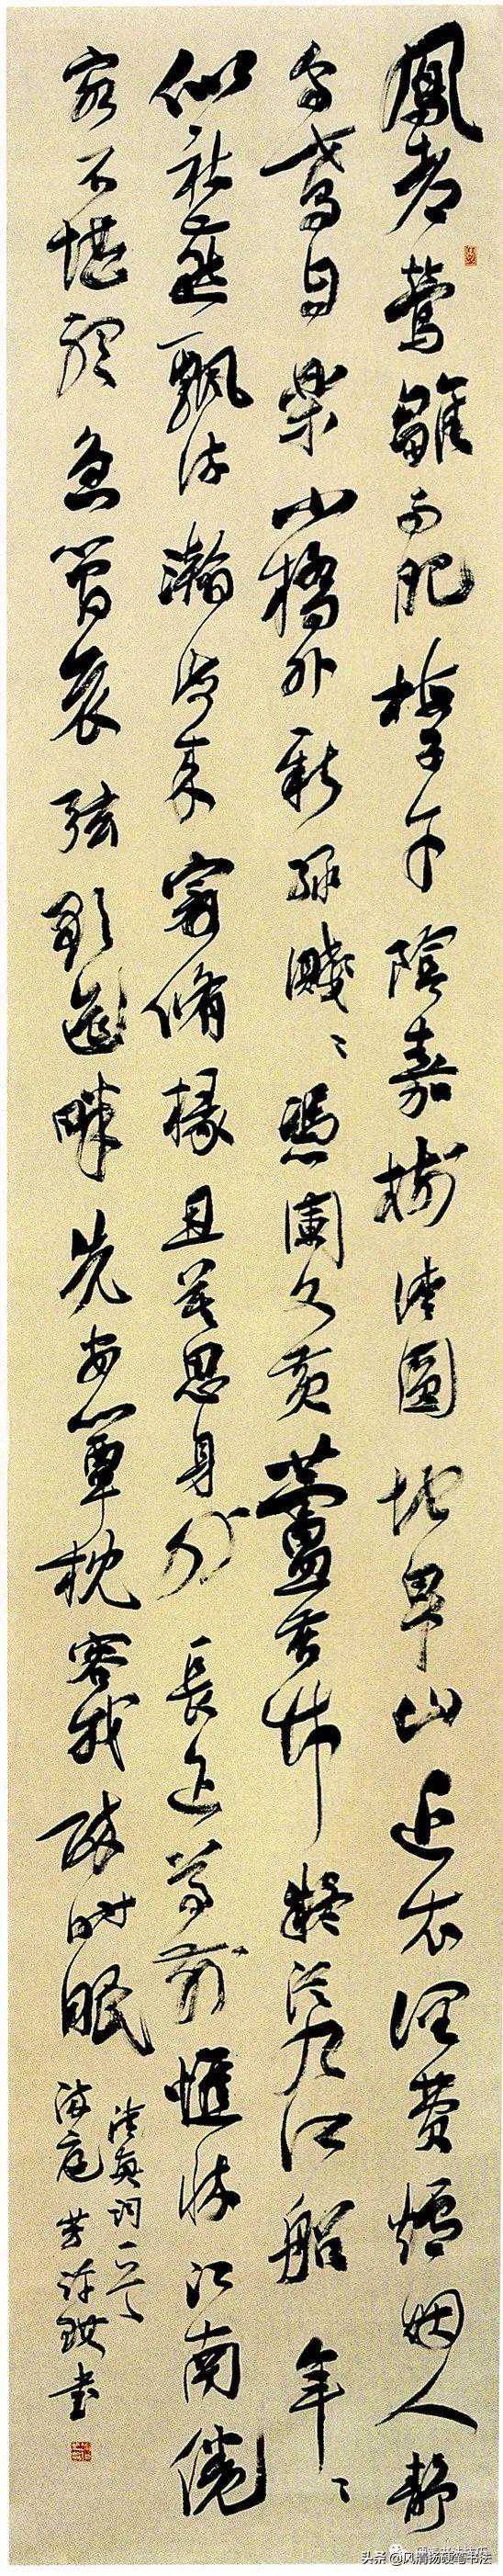 風老鶯雛雨肥梅子午陰嘉樹清圓地卑山近衣潤費爐烟人靜
烏鳶自樂小橋外新綠濺濺憑闌久黃蘆苦竹擬泛九江船年〻
似社燕飄流瀚海來寄脩椽且莫思身外長近尊前憔悴江南倦
客不堪聽急管哀弦歌筵畔先安簟枕容我醉時眠
清真詞一首
滿庭芳 书
头条 @风清扬硬笔书法